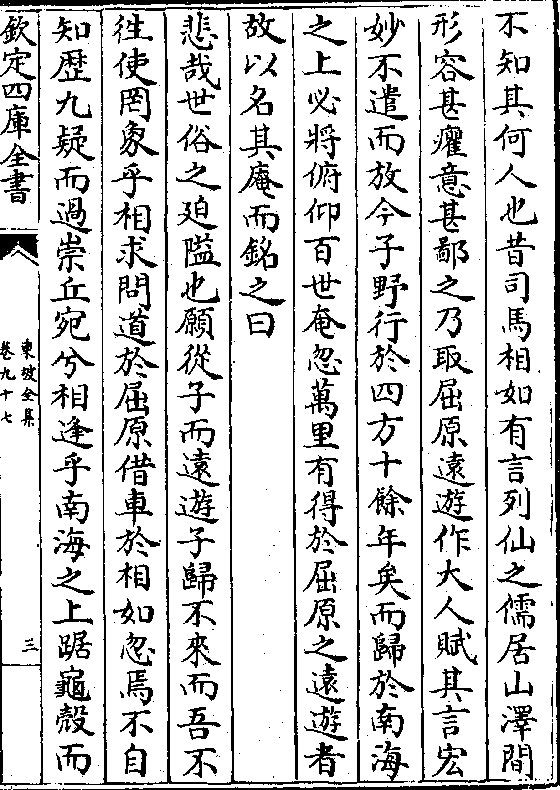 不知其何人也昔司馬相如有言列仙之儒居山澤間
形容甚癯意甚鄙之乃取屈原遠遊作大人賦其言宏
妙不遣而放今子野行於四方十餘年矣而歸於南海
之上必將俯仰百世奄忽萬里有得於屈原之遠遊者
故以名其庵而銘之曰
悲哉世俗之廹隘也願從子而遠遊子歸不來而吾不
徃使罔象乎相求問道於屈原借車於相如忽焉不自
知歴九疑而過崇丘宛兮相逢乎南海之上踞龜殻而
欽定四庫全書
東坡全集
卷九十七
三